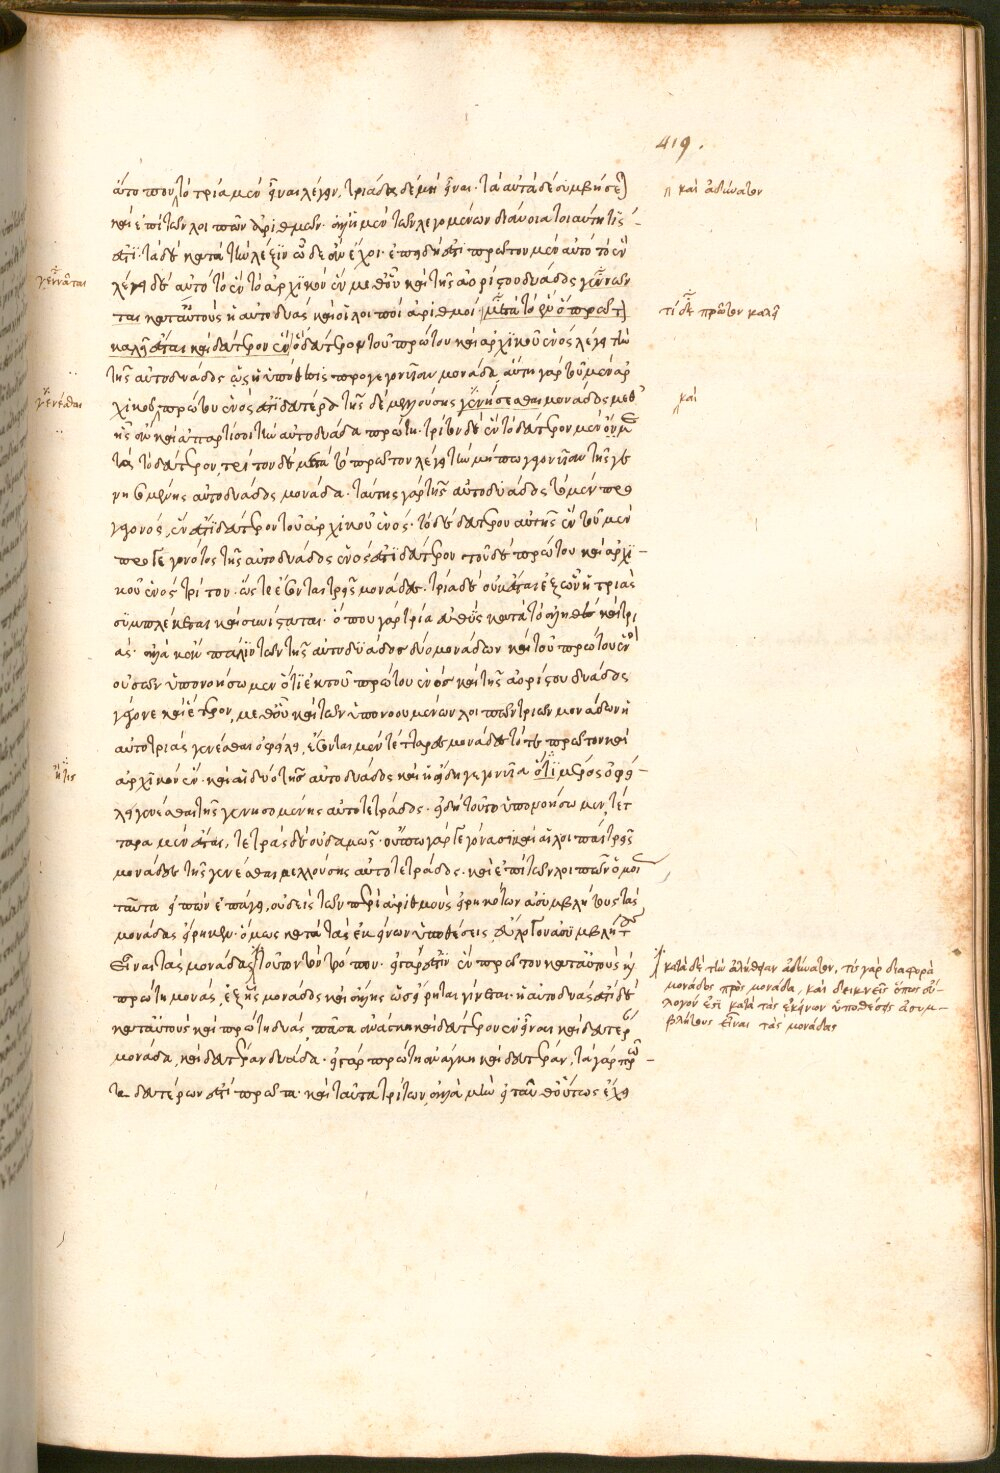 419.
ἄτοπον τὸ τρία μὲν εἶναι λέγειν, τριάδα δὲ μὴ εἶναι· τὰ αὐτὰ δὲ συμβήσεται
καὶ ἐπὶ τῶν λοιπῶν ἀριθμῶν· ἡ μὲν τῶν λεγομένων διάνοια τοιαύτη τίς
ἐστι· τὰ δὲ κατὰ τὴν λέξιν ὧδε ἂν ἔχοι· ἐπειδή ἐστι πρῶτον μὲν αὐτὸ τὸ ἓν
λέγει δὲ αὐτὸ τὸ ἓν τὸ ἀρχικὸν ἓν μεθ' οὗ καὶ τῆς ἀορίστου δυάδος γεννῶν
ται κατ' αὐτοὺς ἡ αὐτοδυὰς καὶ οἱ λοιποὶ ἀριθμοί· μετὰ τὸ ἓν ὃ πρῶτον
καλεῖται καὶ δεύτερον ἓν δεύτερον τοῦ πρώτου καὶ ἀρχικοῦ ἑνὸς λέγει τὴν
τῆς αὐτοδυάδος ὡς ἡ ὑπόθεσις προγεγονυῖαν μονάδα, αὕτη γὰρ τοῦ μὲν ἀρ
χικοῦ πρώτου ἑνός ἐστι δευτέρα τῆς δὲ μελλούσης γενήσεσθαι μονάδος μεθ'
ἧς ἂν καὶ ἀπαρτίσοι τὴν αὐτοδυάδα πρώτη· τρίτον δὲ ἓν τὸ δεύτερον μὲν ὂν με
τὰ τὸ δεύτερον, τρίτον δὲ μετὰ τὸ πρῶτον λέγει τὴν μήπω γεγονυῖαν τῆς γε
νησομένης αὐτοδυάδος μονάδα· ταύτης γὰρ τῆς αὐτοδυάδος τὸ μὲν προ
γεγονός, ἕν ἐστι δεύτερον τοῦ ἀρχικοῦ ἑνός· τὸ δὲ δεύτερον αὐτῆς ἓν τοῦ μὲν
προγεγονότος τῆς αὐτοδυάδος ἑνός ἐστι δεύτερον τοῦ δὲ πρώτου καὶ ἀρχι-
κοῦ ἑνὸς τρίτον· ὥστε ἔσονται τρεῖς μονάδες· τριὰς δὲ οὐκ ἔσται ἐξ ὧν ἡ τριὰς
συμπλέκεται καὶ συνίσταται· ὅπου γὰρ τρία εὐθὺς κατὰ τὸ σύνηθες καὶ τρι
άς· ἀλλὰ κἂν πάλιν τῶν τῆς αὐτοδυάδος δύο μονάδων καὶ τοῦ πρώτου ἑνὸς
οὐσῶν ὑπονοήσωμεν ὅτι ἐκ τοῦ πρώτου ἑνὸς καὶ τῆς ἀορίστου δυάδος
γέγονε καὶ ἕτερον, μεθ' οὗ καὶ τῶν ὑπονοουμένων λοιπῶν τριῶν μονάδων ἡ
αὐτοτριὰς γενέσθαι ὀφείλει, ἔσονται μὲν τέτταρες μονάδες τό τε πρῶτον καὶ
ἀρχικὸν ἓν· καὶ αἱ δύο τῆς αὐτοδυάδος καὶ ἡ ἤδη γεγονυῖα ὅτι μέρος ὀφεί-
λει γενέσθαι τῆς γενησομένης αὐτοτετράδος· εἰ δὴ τοῦτο ὑπονοήσωμεν, τέτ
ταρα μὲν ἔσται, τετρὰς δὲ οὐδαμῶς· οὔπω γὰρ γεγόνασι καὶ αἱ λοιπαὶ τρεῖς
μονάδες τῆς γενέσθαι μελλούσης αὐτοτετράδος· καὶ ἐπὶ τῶν λοιπῶν ὁμοί
ταῦτα εἰπὼν ἐπάγει, οὐδεὶς τῶν περὶ ἀριθμοὺς εἰρηκότων ἀσυμβλήτους τὰς
μονάδας εἴρηκεν· ὅμως κατὰ τὰς ἐκείνων ὑποθέσεις, εὔλογον ἀσυμβλήτους
εἶναι τὰς μονάδας τοῦτον τὸν τρόπον· εἴπερ ἐστὶν ἓν πρῶτον κατ' αὐτοὺς ἢ
πρώτη μονάς, ἑξῆς μονάδος καὶ ἄλλης ὡς εἴρηται γίνεται· ἡ αὐτοδυάς ἐστι δὲ
κατ' αὐτοὺς καὶ πρώτη δυάς, πᾶσα ἀνάγκη καὶ δεύτερον ἓν εἶναι καὶ δευτέρ
μονάδα, καὶ δευτέραν δυάδα· εἴπερ πρώτη ἀνάγκη καὶ δευτέραν, τὰ γὰρ πρῶ-
τα δευτέρων ἐστὶ πρῶτα· καὶ ταῦτα τρίτων, ἀλλὰ μὴν εἰ ταῦθ' οὕτως ἔχει
καὶ ἀδύνατον
γεννᾶται
τί δὲ πρῶτον καλεῖ
γενέσθαι
καὶ
ἥτις
κατὰ δὲ τὴν ἀλήθειαν ἀδύνατον, τὸ γὰρ διαφορὰ
μονάδος πρὸς μονάδα, καὶ δεικνύει ὅπως εὔ-
λογόν ἐστι κατὰ τὰς ἐκείνων ὑποθέσεις ἀσυμ-
βλήτους εἶναι τὰς μονάδας